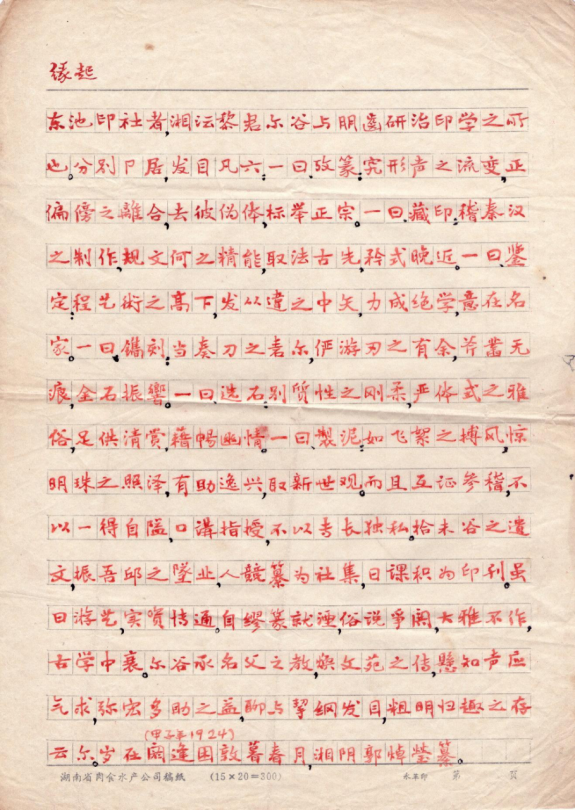 缘起
东池印社者,湘沄黎君尔谷与朋侪研治印学之所
也。分别户居,发目凡六:一曰,攷篆:究形声之流变,正
偏傍之離合,去彼伪体,标举正宗。一曰,藏印:稽秦汉
之制作,规文何之精能,取法古先,矜式晚近。一曰,鑒
定:程艺術之髙下,发从违之中矢,力成绝学,意在名
家。一曰,镌刻:当奏刀之砉尔,俨游刃之有余,斧凿无
痕,金石振響。一曰,选石:别質性之刚柔,严体式之雅
俗,足供清赏,藉畅幽情。一曰,製泥:如飞絮之搏风,惊
明珠之照泽,有助逸兴,取新世观。而且互证参稽,不
以一得自隘,口講指授,不以专长独私,拾未谷之遗
文,振吾邱之墜业,人競纂为社集,日课积为印刋。虽
曰游艺,实資情通。自缪篆就湮,俗说爭闹,大雅不作,
古学中衰。尔谷承名父之教,燦文苑之传,懸知声应
气求,弥宏多助之益,聊与挈纲发目,粗明归趣之存
云尔。岁在阏逢困敦暮春月,湘阴郭焯莹纂。
(甲子年1924)
湖南省商食水产公司稿紙 (15×20=300) 第 頁